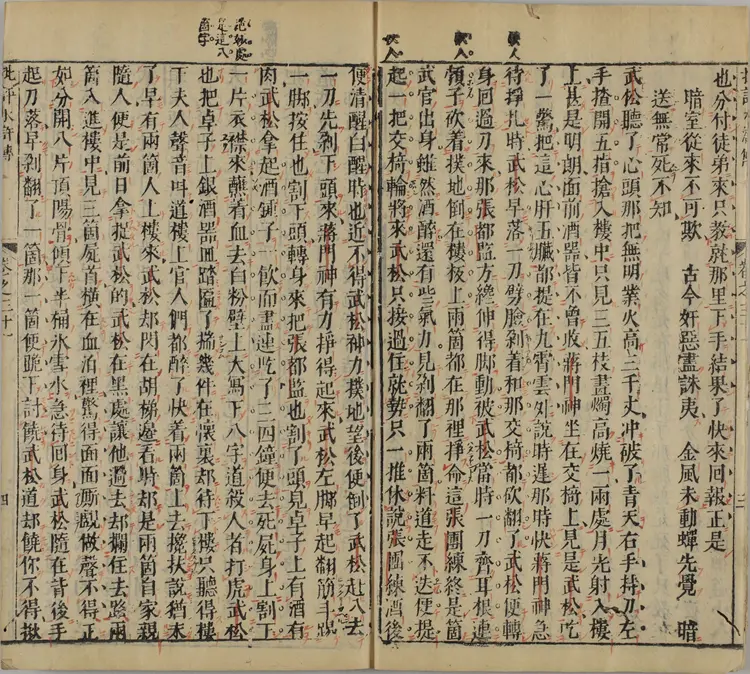 也分付徒弟來只教就那里下手結果了快來回報正是
暗室從來不可欺　古今奸惡盡誅夷　金風未動蟬先覺　暗
送無常死不知
武松聽了心頭那把無明業火高三千丈冲破了青天右手持刀左
手揸開五指搶入樓中只見三五枝畫燭高燒一兩處月光射入樓
上甚是明朗面前酒器皆不曾收蔣門神坐在交椅上見是武松吃
了一驚把這心肝五臟都提在九霄雲外說時遲那時快蔣門神急
待掙扎時武松早落一刀劈臉剁着和那交椅都砍翻了武松便轉
身回過刀來那張都監方纔伸得脚動被武松當時一刀齊耳根連
頸子砍着撲地倒在樓板上兩箇都在那裡掙命這張團練終是箇
武官出身雖然酒醉還有些氣力見剁翻了兩箇料道走不迭便提
起一把交椅輪將來武松只接過住就勢只一推休說張團練酒後
便清醒白醒時也近不得武松神力撲地望後便倒了武松赶入去
一刀先剁下頭來蔣門神有力掙得起來武松左脚早起翻筋斗踢
一脚按住也割下頭轉身來把張都監也割了頭見卓子上有酒有
肉武松拿起酒鍾子一飲而盡連吃了三四鍾便去死屍身上割下
一片衣襟來蘸着血去白粉壁上大寫下八字道殺人者打虎武松
也把卓子上銀酒器皿踏匾了揣幾件在懷裏却待下樓只聽得樓
下夫人聲音叫道樓上官人們都醉了快着兩箇上去攙扶說猶未
了早有兩箇人上樓來武松却閃在胡梯邊看時却是兩箇自家親
隨人便是前日拿捉武松的武松在黑處讓他過去却攔住去路兩
箇入進樓中見三箇屍首橫在血泊裡驚得面面厮覷做聲不得正
如分開八片頂陽骨傾下半桶氷雪水急待回身武松隨在背後手
起刀落早剁翻了一箇那一箇便跪下討饒武松道却饒你不得揪
批評水滸傳
卷之三十一
四